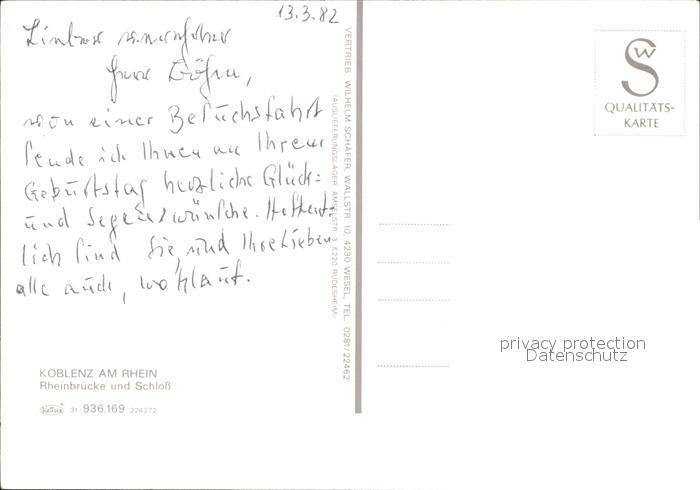 13.3.82
Lieber verehrter
Herr Böhm,
von einer Besuchsfahrt
sende ich Ihnen zu Ihrem
Geburtstag herzliche Glück=
und Segenswünsche. Hoffent-
lich sind Sie, und Ihre Lieben
alle auch, wohlauf.
VERTRIEB: WILHELM SCHÄFER, WALLSTR. 10, 4230 WESEL, TEL. 0281/22462
(AUSLIEFERUNGSLAGER: AMSELSTR. 3, 6220 RÜDESHEIM)
W S
QUALITÄTS-
KARTE
KOBLENZ AM RHEIN
Rheinbrücke und Schloß
Krüger 31 936.169 224272
privacy protection
Datenschutz